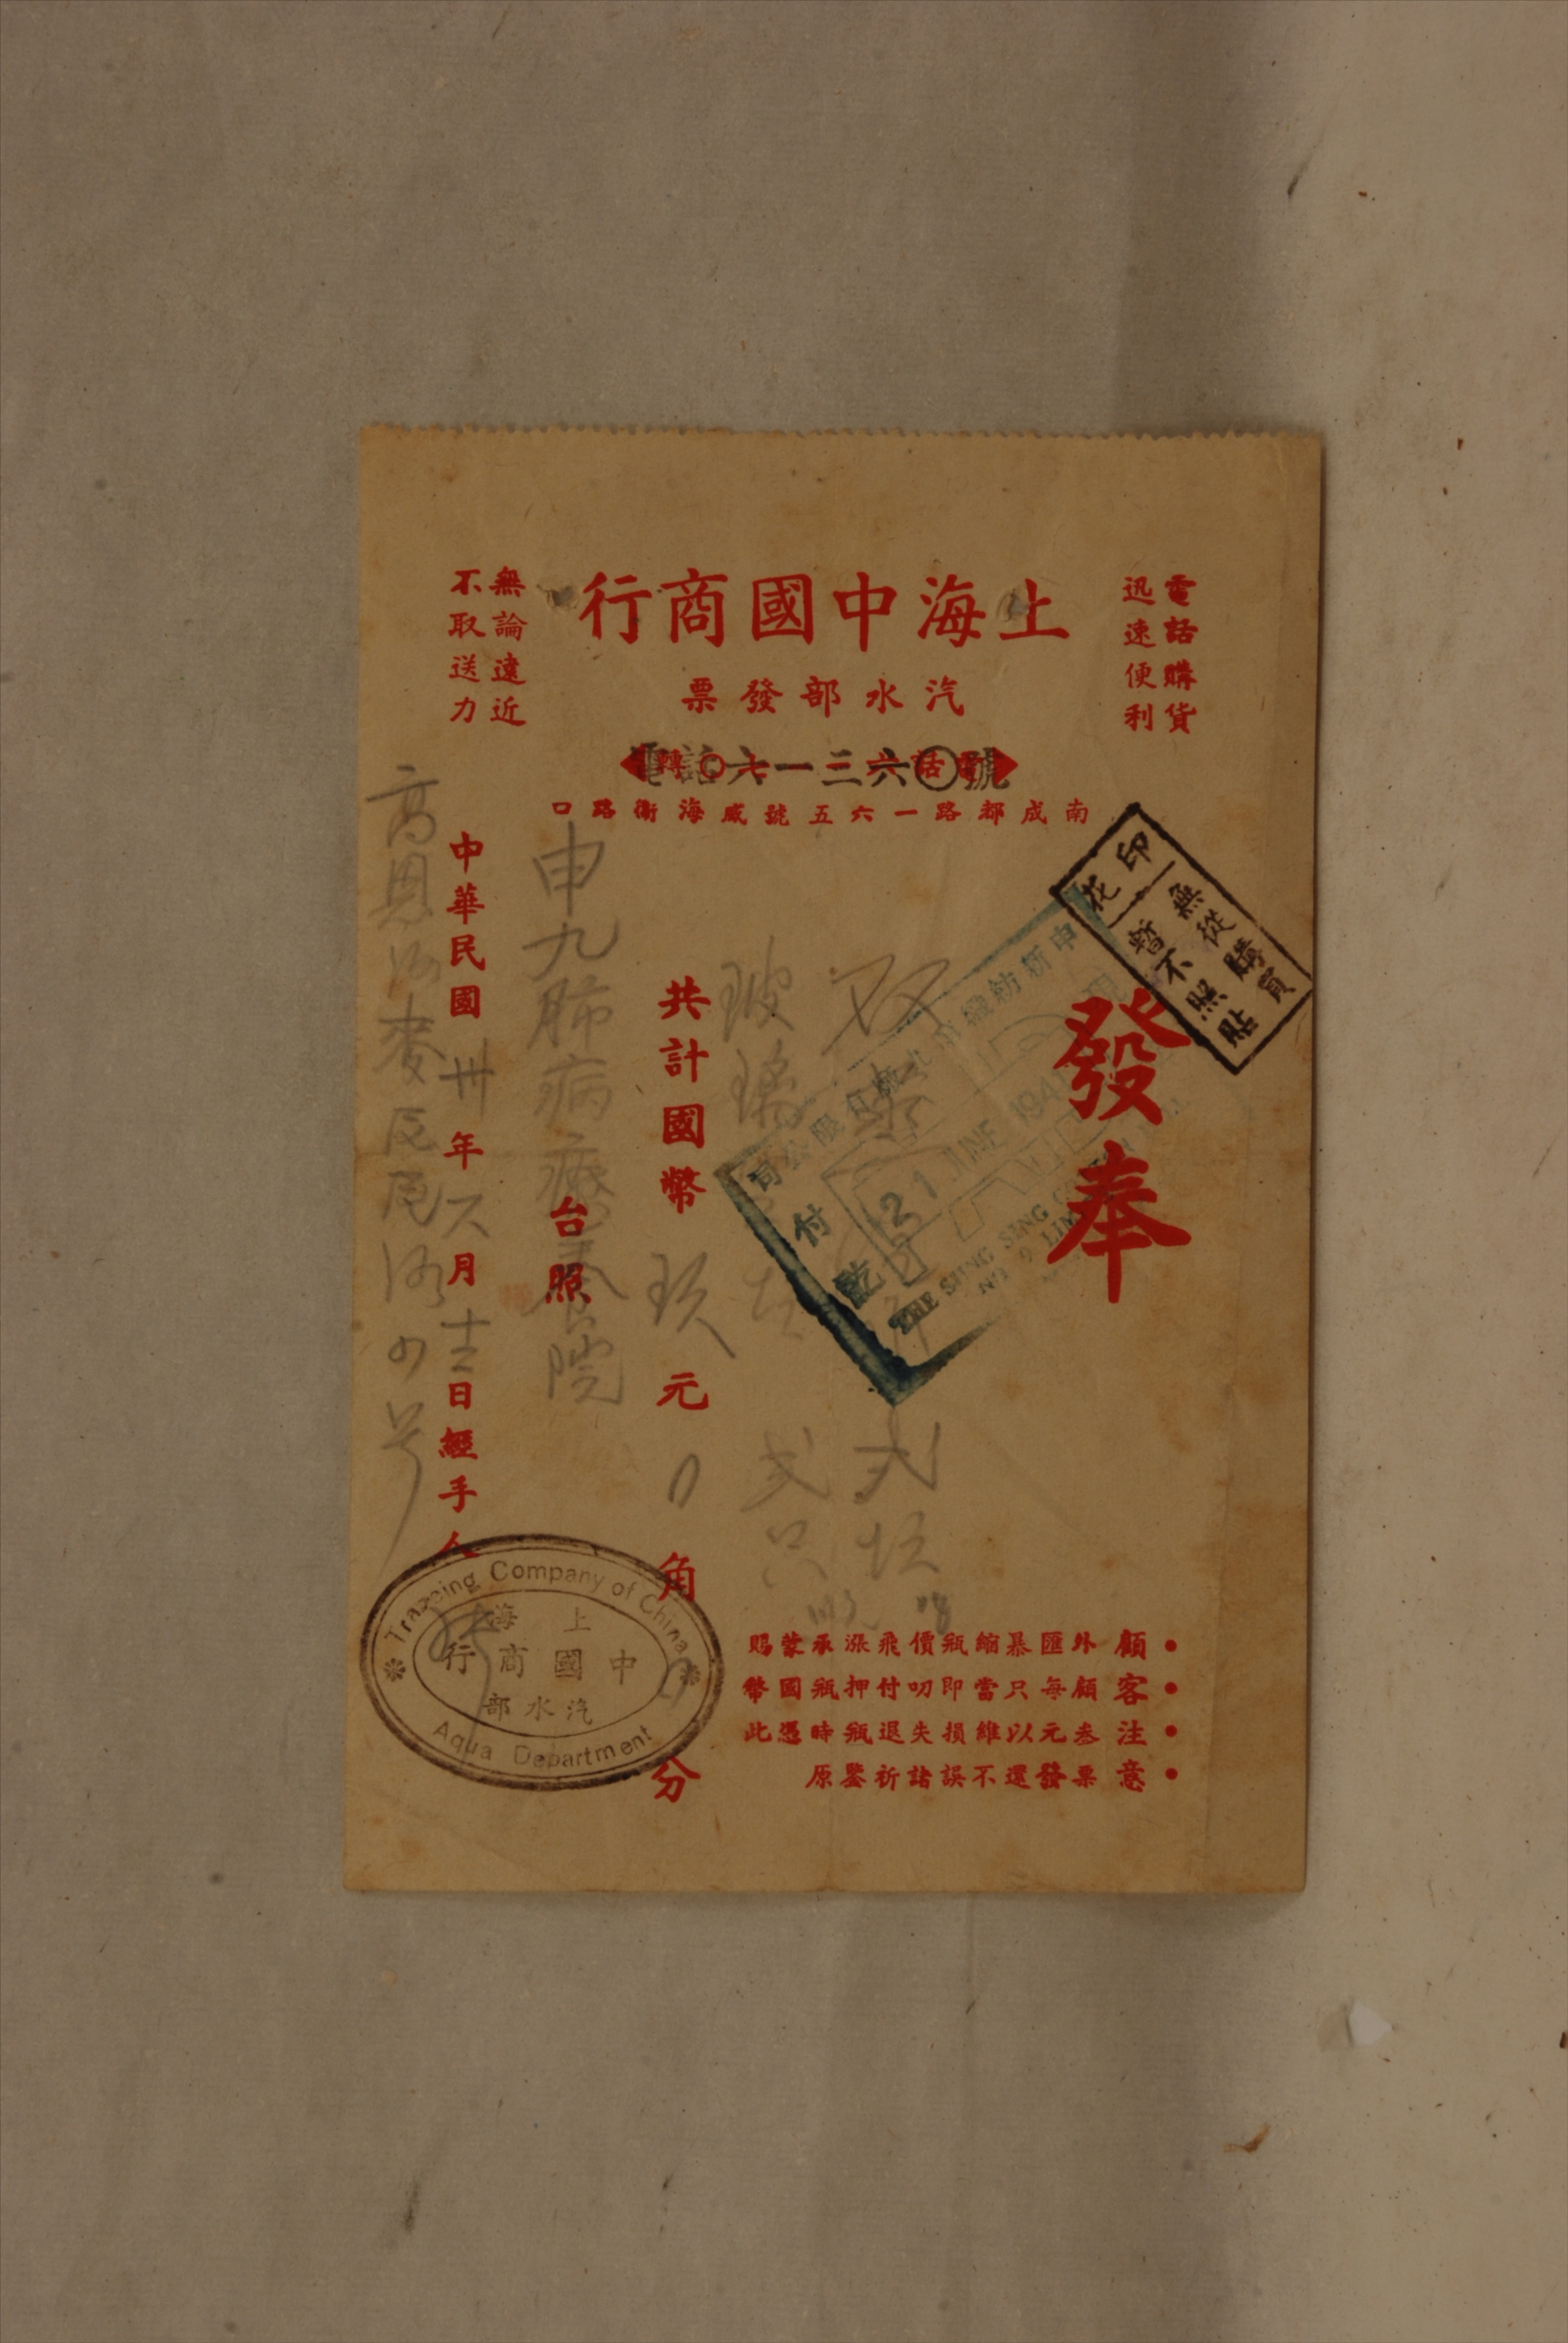 電話購貨
迅速便利
上海中國商行
汽水部發票
電話六一三六〇號
南成都路一六五號威海衛路口
無論遠近
不取送力
印花
無從購買
暫不照貼
奉發
申新紡織第九廠有限公司
付訖
21 JUNE 1941
THE SUNG SING CO
NO 9 LIM
弍
玻璃
弍只
共計國幣玖元0角0分
申九肺病療養院台照
中華民國卅年六月十二日經手人
高恩路麥尼尼路口号
顧客注意
外匯暴縮瓶價飛漲承蒙賜
顧每只當即叨付押瓶國幣
叁元以維損失退瓶時憑此
票發還不誤諸祈鑒原
Tradeing Company of China
上海
中國商行
汽水部
Aqua Department